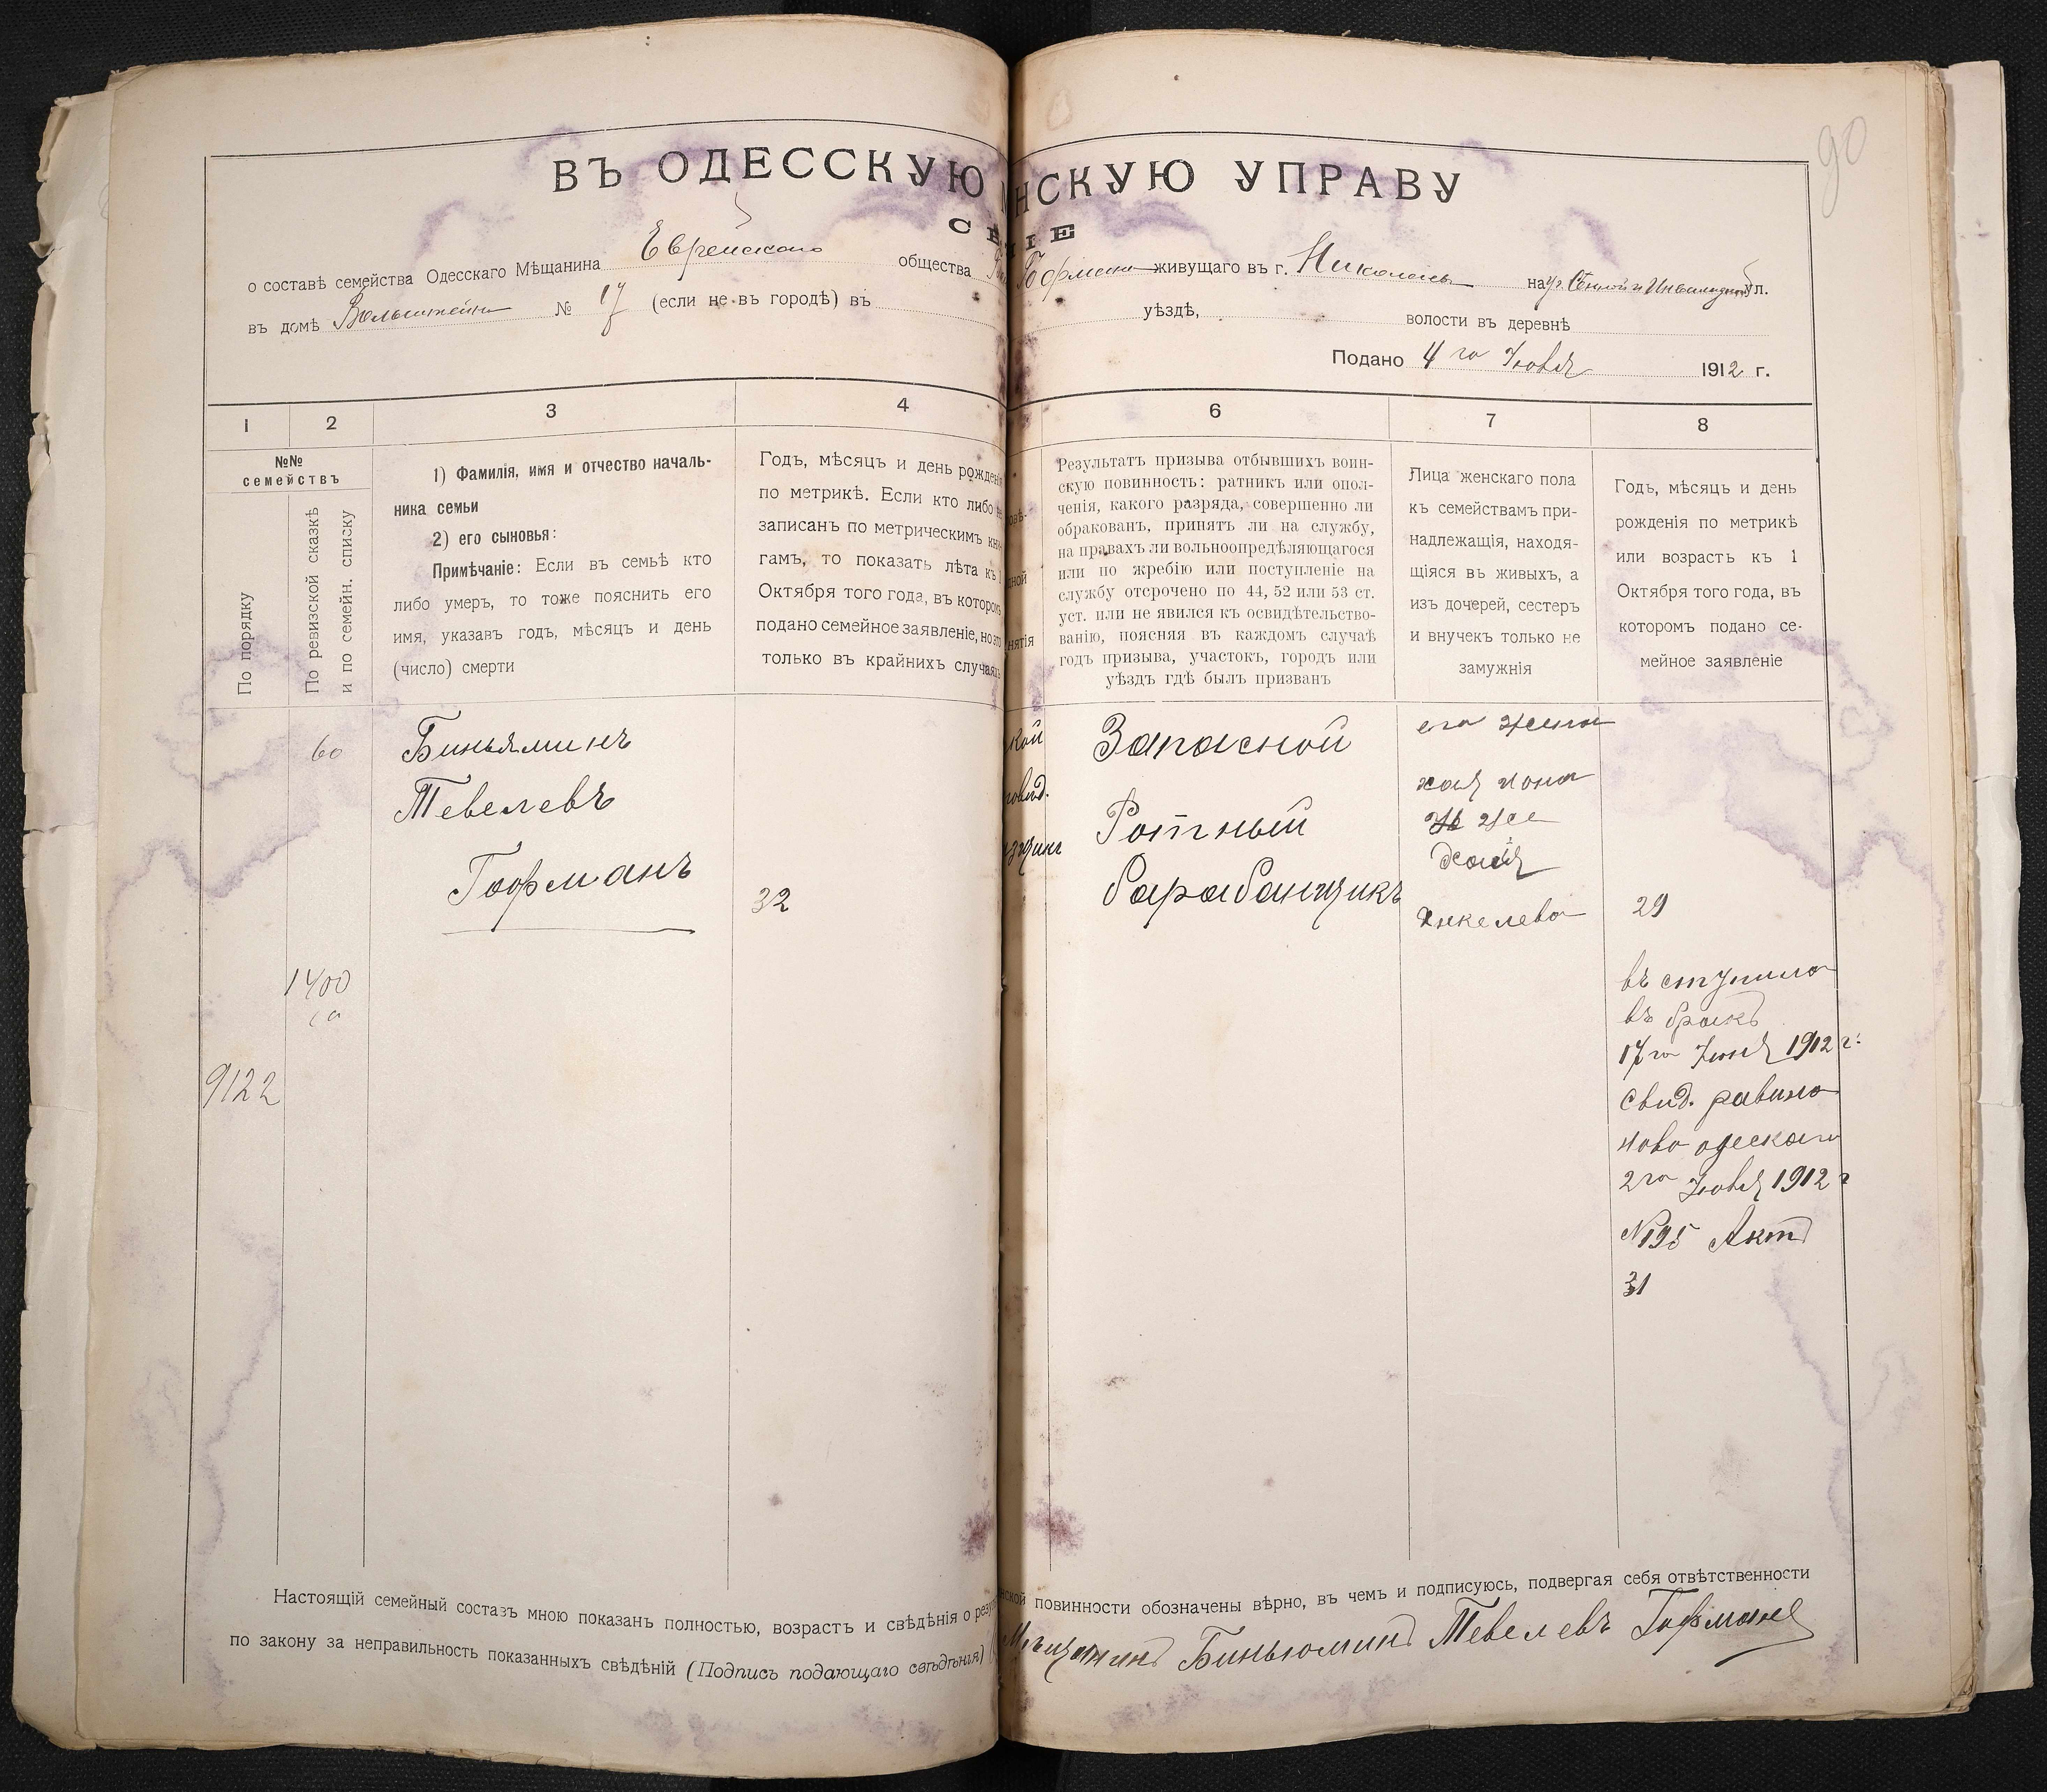 90
ВЪ ОДЕССКУЮ НСКУЮ УПРАВУ
о составѣ семейства Одесскаго Мѣщанина Еврейскаго общества Гофмана живущаго въ г. Николаевъ на уг. Сѣнной и Инвалидной ул.
въ домѣ Вольштейна № 17 (если не въ городѣ) въ уѣздѣ, волости въ деревнѣ
Подано 4 го Іюля 1912 г.
1 2 3 4 6 7 8
№№
семействъ
По порядку
По ревизской сказкѣ
и по семейн. списку
1) Фамилія, имя и отчество началь-
ника семьи
2) его сыновья:
Примѣчаніе: Если въ семьѣ кто
либо умеръ, то тоже пояснить его
имя, указавъ годъ, мѣсяцъ и день
(число) смерти
Годъ, мѣсяцъ и день рожденія
по метрикѣ. Если кто либо не
записанъ по метрическимъ кни
гамъ, то показать лѣта къ 1
Октября того года, въ которомъ
подано семейное заявленіе, но это
только въ крайнихъ случаяхъ
Результатъ призыва отбывшихъ воин-
скую повинность: ратникъ или опол-
ченія, какого разряда, совершенно ли
обракованъ, принятъ ли на службу,
на правахъ ли вольноопредѣляющагося
или по жребію или поступленіе на
службу отсрочено по 44, 52 или 53 ст.
уст. или не явился къ освидѣтельство-
ванію, поясняя въ каждомъ случаѣ
годъ призыва, участокъ, городъ или
уѣздъ гдѣ былъ призванъ
Лица женскаго пола
къ семействамъ при-
надлежащія, находя-
щіяся въ живыхъ, а
изъ дочерей, сестеръ
и внучекъ только не
замужнія
Годъ, мѣсяцъ и день
рожденія по метрикѣ
или возрастъ къ 1
Октября того года, въ
которомъ подано се-
мейное заявленіе
60
1400
9122
Биньяминъ
Тевелевъ
Гофманъ
32
Запасной
Ротный
барабанщикъ
его жена
хая
же
Хая
Янкелева
29
въ ступила
въ бракъ
17го Іюня 1912 г.
свид. равина
ново одескаго
2го Іюля 1912 г
№195 Актъ
31
Настоящій семейный составъ мною показанъ полностью, возрастъ и свѣдѣнія о резу нской повинности обозначены вѣрно, въ чемъ и подписуюсь, подвергая себя отвѣтственности
по закону за неправильность показанныхъ свѣдѣній (Подпись подающаго свѣдѣнія) Мѣщанинъ Биньюминъ Тевелевъ Гофманъ